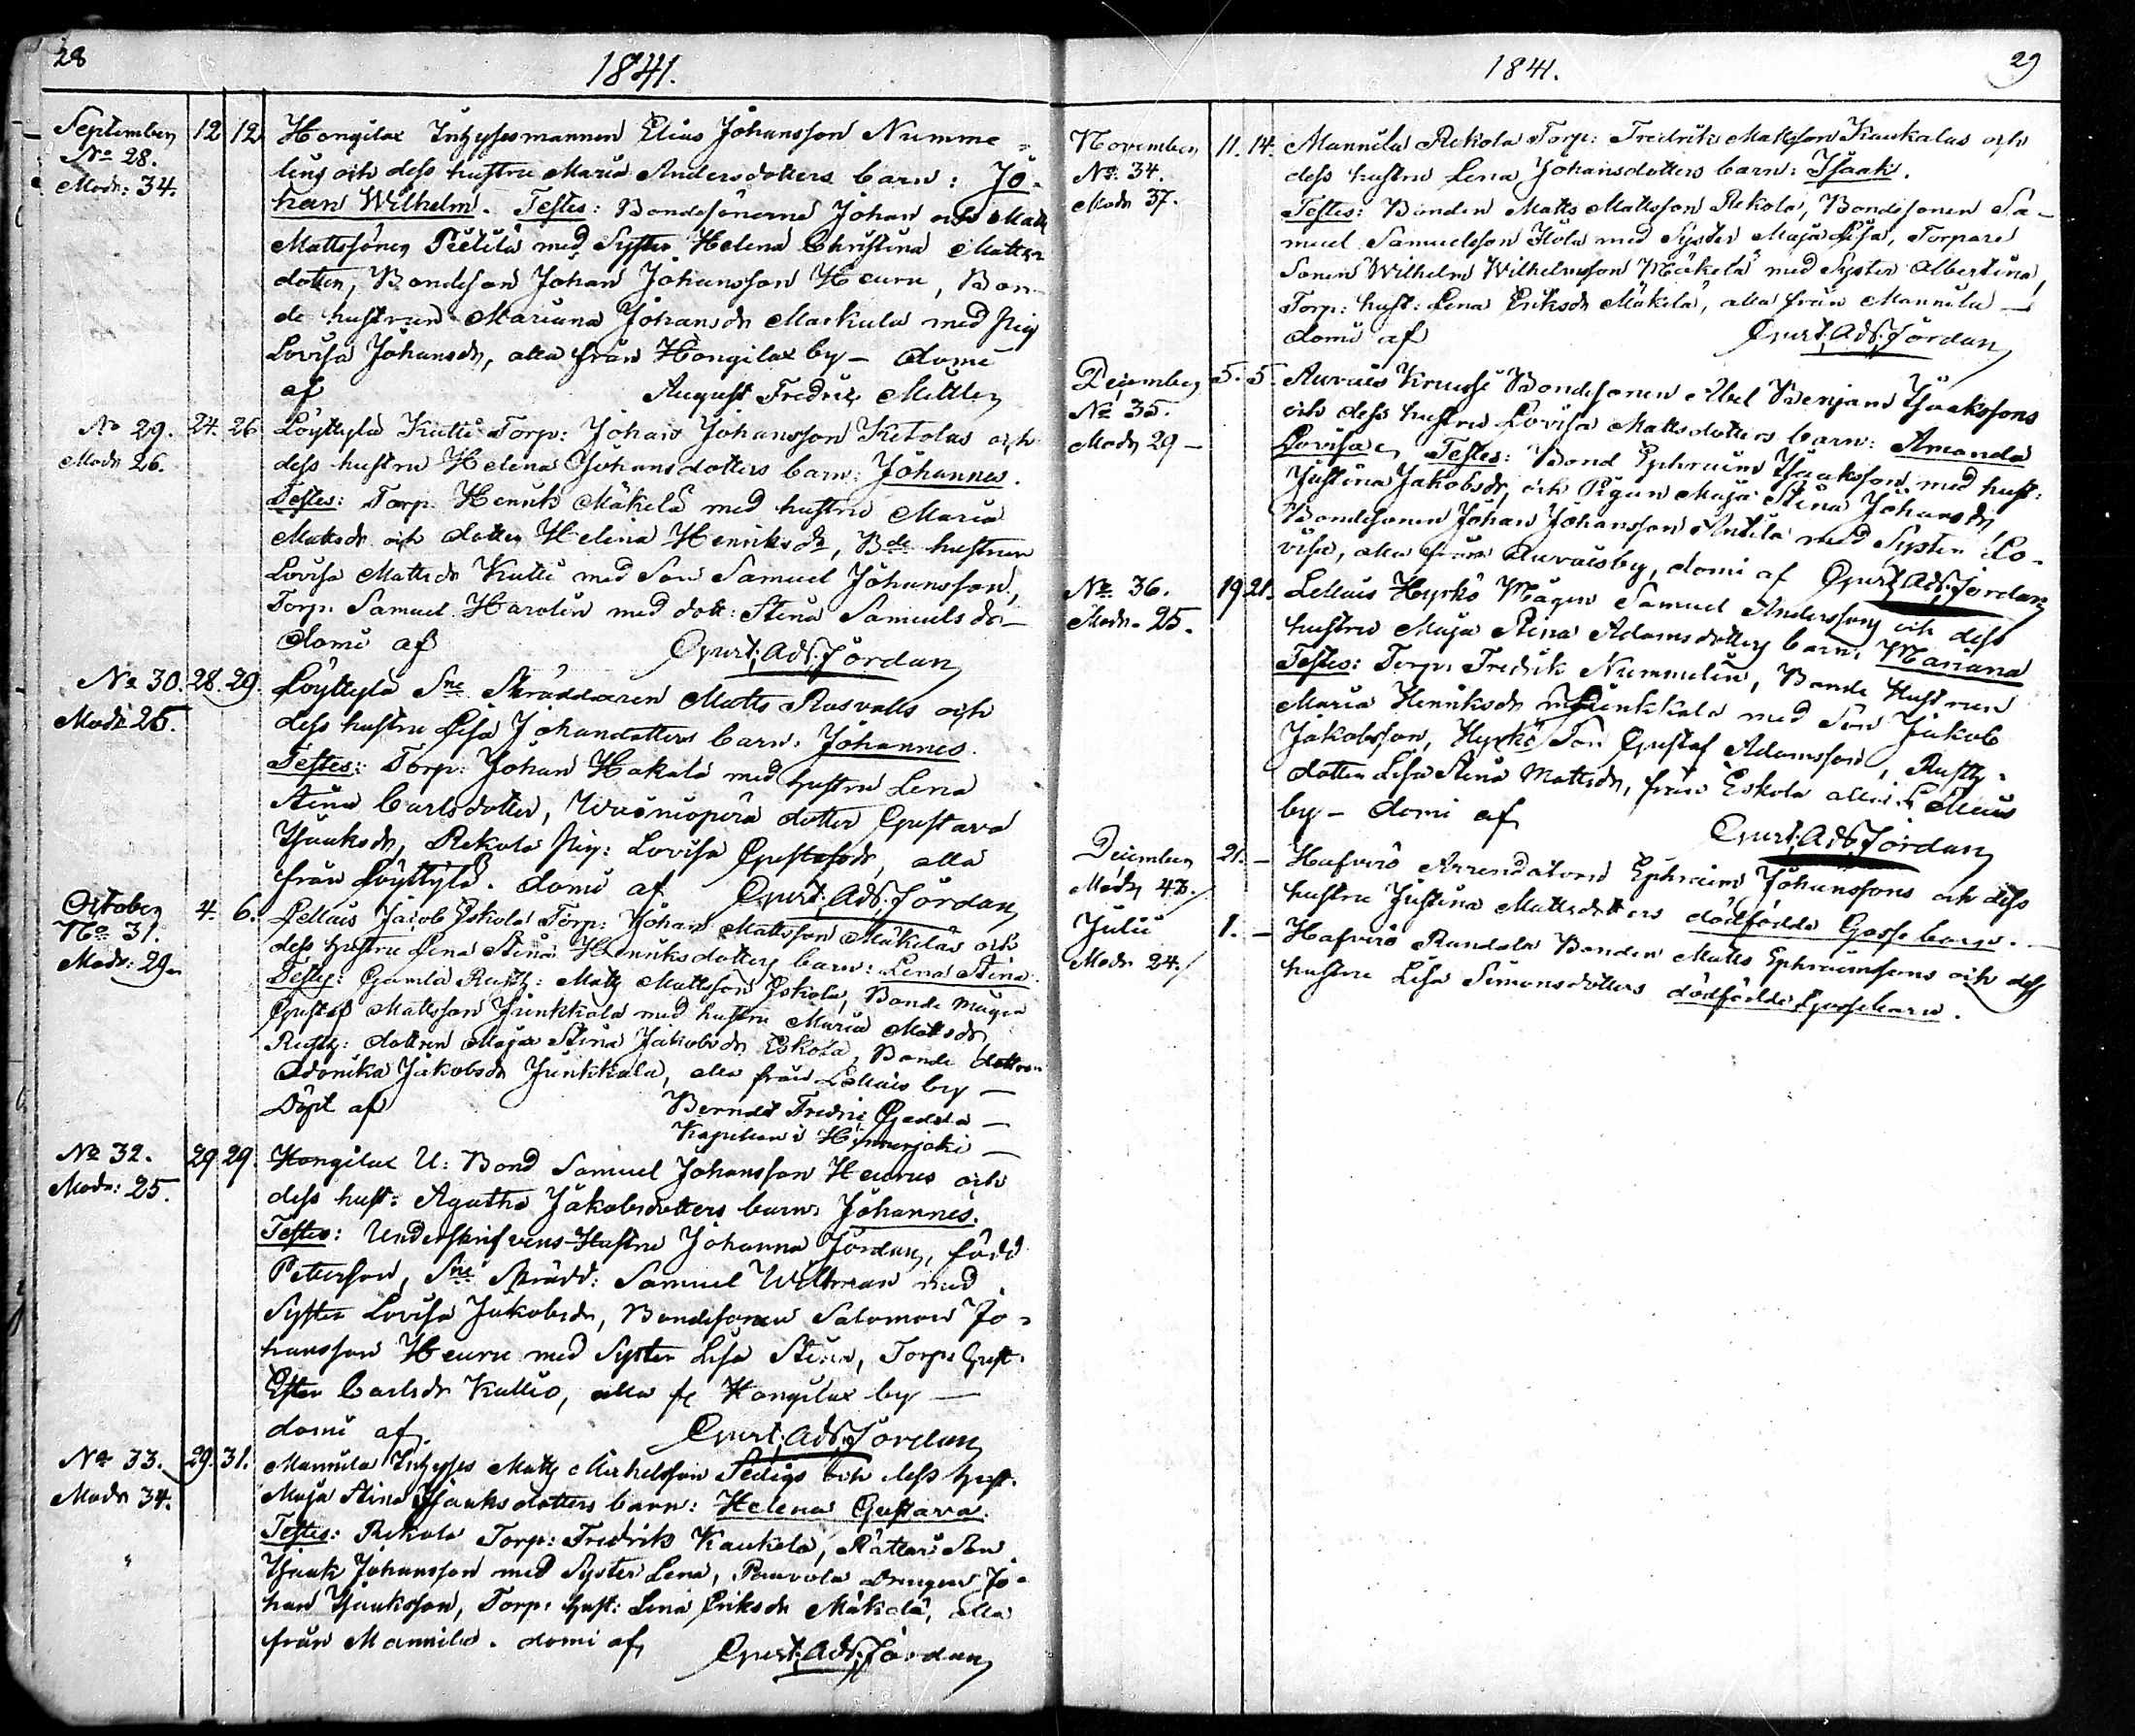 28
1841.
September 12 12 Hongilax Inhysesmannen Elias Johansson Numme=
No 28. lins och dess hustru Maria Andersdotters barn: Jo-
Modr: 34. han Wilhelm. Testes: Bondesönerna Johan och Matts
Mattssöner Pietilä med Syster Helena Christina Matts-
dotter, Bondeson Johan Johansson Heuru, Bon-
de hustrun Mariana Johansdr Markula med pig
Lovisa Johansdr, alla från Hongilax by – domi
af August Fredric Mittler
No 29. 24. 26 Löyttylä Kutti Torp: Johan Johansson Ketolas och
Modr 26. dess hustru Helena Johansdotters barn: Johannes.
Testes: Torp. Henrik Mäkelä med hustru Maria
Mattsdr och dotter Helena Henriksdr, Bde hustrun
Lovisa Mattsdr Kutti med Son Samuel Johansson,
Torp. Samuel Harolin med dott: Stina Samuelsdr –
domi af Gust: Ad: Jordan
No 30. 28. 29. Löyttylä Sne Skräddaren Matts Rosvalls och
Modr 25. dess hustru Lisa Johandotters barn: Johannes.
Testes: Torp: Johan Hakala med hustru Lena
Stina Carlsdotter, Wainiopera dotter Gustava
Isaaksdr, Rekola pig: Lovisa Gustafsdr, alla
från Löyttylä. domi af Gust: Ad: Jordan
October 4. 6. Lellais Jacob Eskola Torp: Johan Mattsson Mäkeläs och
No 31. dess hustru Lena Stina Henriksdotters barn: Lena Stina.
Modr: 29. Testes: Gamla Rusth: Matts Mattsson Eskola, Bonde mågen
Gustaf Mattsson Junkkala med hustru Maria Mattsdr
Rusth: dottren Maja Stina Jakobsdr Eskola, Bonde dottren
Jakobsdr Junkkala, alla från Lellais by –
Döpt af Berndt Fredric Gadda –
Kapellan i Hinnerjoki –
No 32. 29 29. Hongilax U: Bond Samuel Johansson Heurus och
Modr: 25. dess hust: Agatha Jakobsdotters barn: Johannes.
Testes: Underskrifvens Hustru Johanna Jordan, född
Peterson, Sne Skrädd: Samuel Willman med
Syster Lovisa Jakobsdr, Bondesonen Salomon Jo=
hansson Heuru med Syster Lisa Stina, Torp: hust:
Ester Carlsdr Kallio, alla fr Hongilax by –
domi af. Gust: Ad: Jordan
No 33. 29. 31. Mannila Inhyses Matts Michelsson Sedigs och dess hust.
Modr 34. Maja Stina Isaaksdotters barn: Helena Gustava.
Testes: Rekola Torp: Fredrik Kaukola, Rättar: Son
Isaak Johansson med Syster Lena, Paavola Drengen Jo-
han Isaaksson, Torp: hust: Lena Eriksdr Mäkelä, alla
från Mannila. domi af, Gust: Ad: Jordan
1841.
29
November 11. 14. Mannila Rekola Torp: Fredrik Mattsson Kaukolas och
No: 34. dess hustru Lena Johansdotters barn: Isaak.
Modr 37. Testes: Bonden Matts Mattsson Rekola, Bondesonen Sa-
muel Samuelsson Kola med Syster Maja Lisa, Torpare
Sonen Wilhelm Wilhelmsson Mäkelä med Syster Albertina,
Torp: hust: Lena Eriksdr Mäkelä, alla från Mannila –
domi af Gust: Ad: Jordan
December 5. 5. Auvais Bondesonen Abel Benjam Isaakssons
No 35. och dess hustru Lovisa Mattsdotters barn: Amanda
Modr 29 – Lovisa. Testes: Bond Ephraim Isaaksson med hust:
Justina Jakobsdr, och Pigan Maja Stina Johansdr,
Bondesonen Johan Johansson Anttila med Syster Lo-
visa, alla från Auvaisby, domi af Gust: Ad: Jordan
No. 36. 19 21. Lellais Hyrkö Mågen Samuel Anderssons och dess
Modr. 25. hustru Maja Stina Adamsdotters barn: Mariana
Testes: Torp: Fredrik Nummelin, Bonde Hustrun
Maria Henriksdr Junkkala med Son Jakob
Jakobsson, Hyrkö Son Gustaf Adamsson, Rusth-
dotter Lisa Stina Mattsdr, från Eskola alla i Lellais
by – domi af Gust: Ad: Jordan
December 21. – Hafvirö Arrendatorn Ephraim Johanssons och dess
Modr 43. hustru Justina Mattsdotters dödfödda Gossebarn. –
Julii 1. – Hafvirö Randala Bonden Matts Ephraimssons och dess
Modr 24. hustru Lisa Simonsdotters dödfödda Gossebarn.